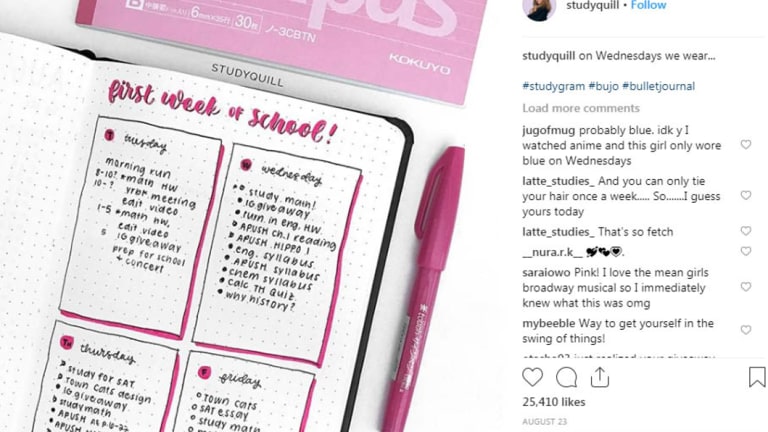 ampus
B 中横罫
6mm×35行 30枚
ノ-3CBTN
KOKUYO
STUDYQUILL
first week of school!
T tuesday
morning run
8-10? *math HW
10-? yrbk meeting
edit video
1-5 *math HW,
edit video
5 IG giveaway
prep for school
+ concert
W wednesday
study math!
IG giveaway
turn in eng. HW
APUSH ch.1 reading
APUSH HIPPO 1
eng. syllabus
APUSH syllabus
chem syllabus
calc TH QUIZ
why history?
Th thursday
study for SAT
Town Cats design
IG giveaway
study math
F friday
Town Cats
SAT essay
study math
studyquill • Follow
studyquill on Wednesdays we wear...
#studygram #bujo #bulletjournal
Load more comments
jugofmug probably blue. idk y I
watched anime and this girl only wore
blue on Wednesdays
latte_studies_ And you can only tie
your hair once a week..... So.......I guess
yours today
latte_studies_ That's so fetch
__nura.r.k__
saraiowo Pink! I love the mean girls
broadway musical so I immediately
knew what this was omg
mybeeble Way to get yourself in the
swing of things!
25,410 likes
AUGUST 23